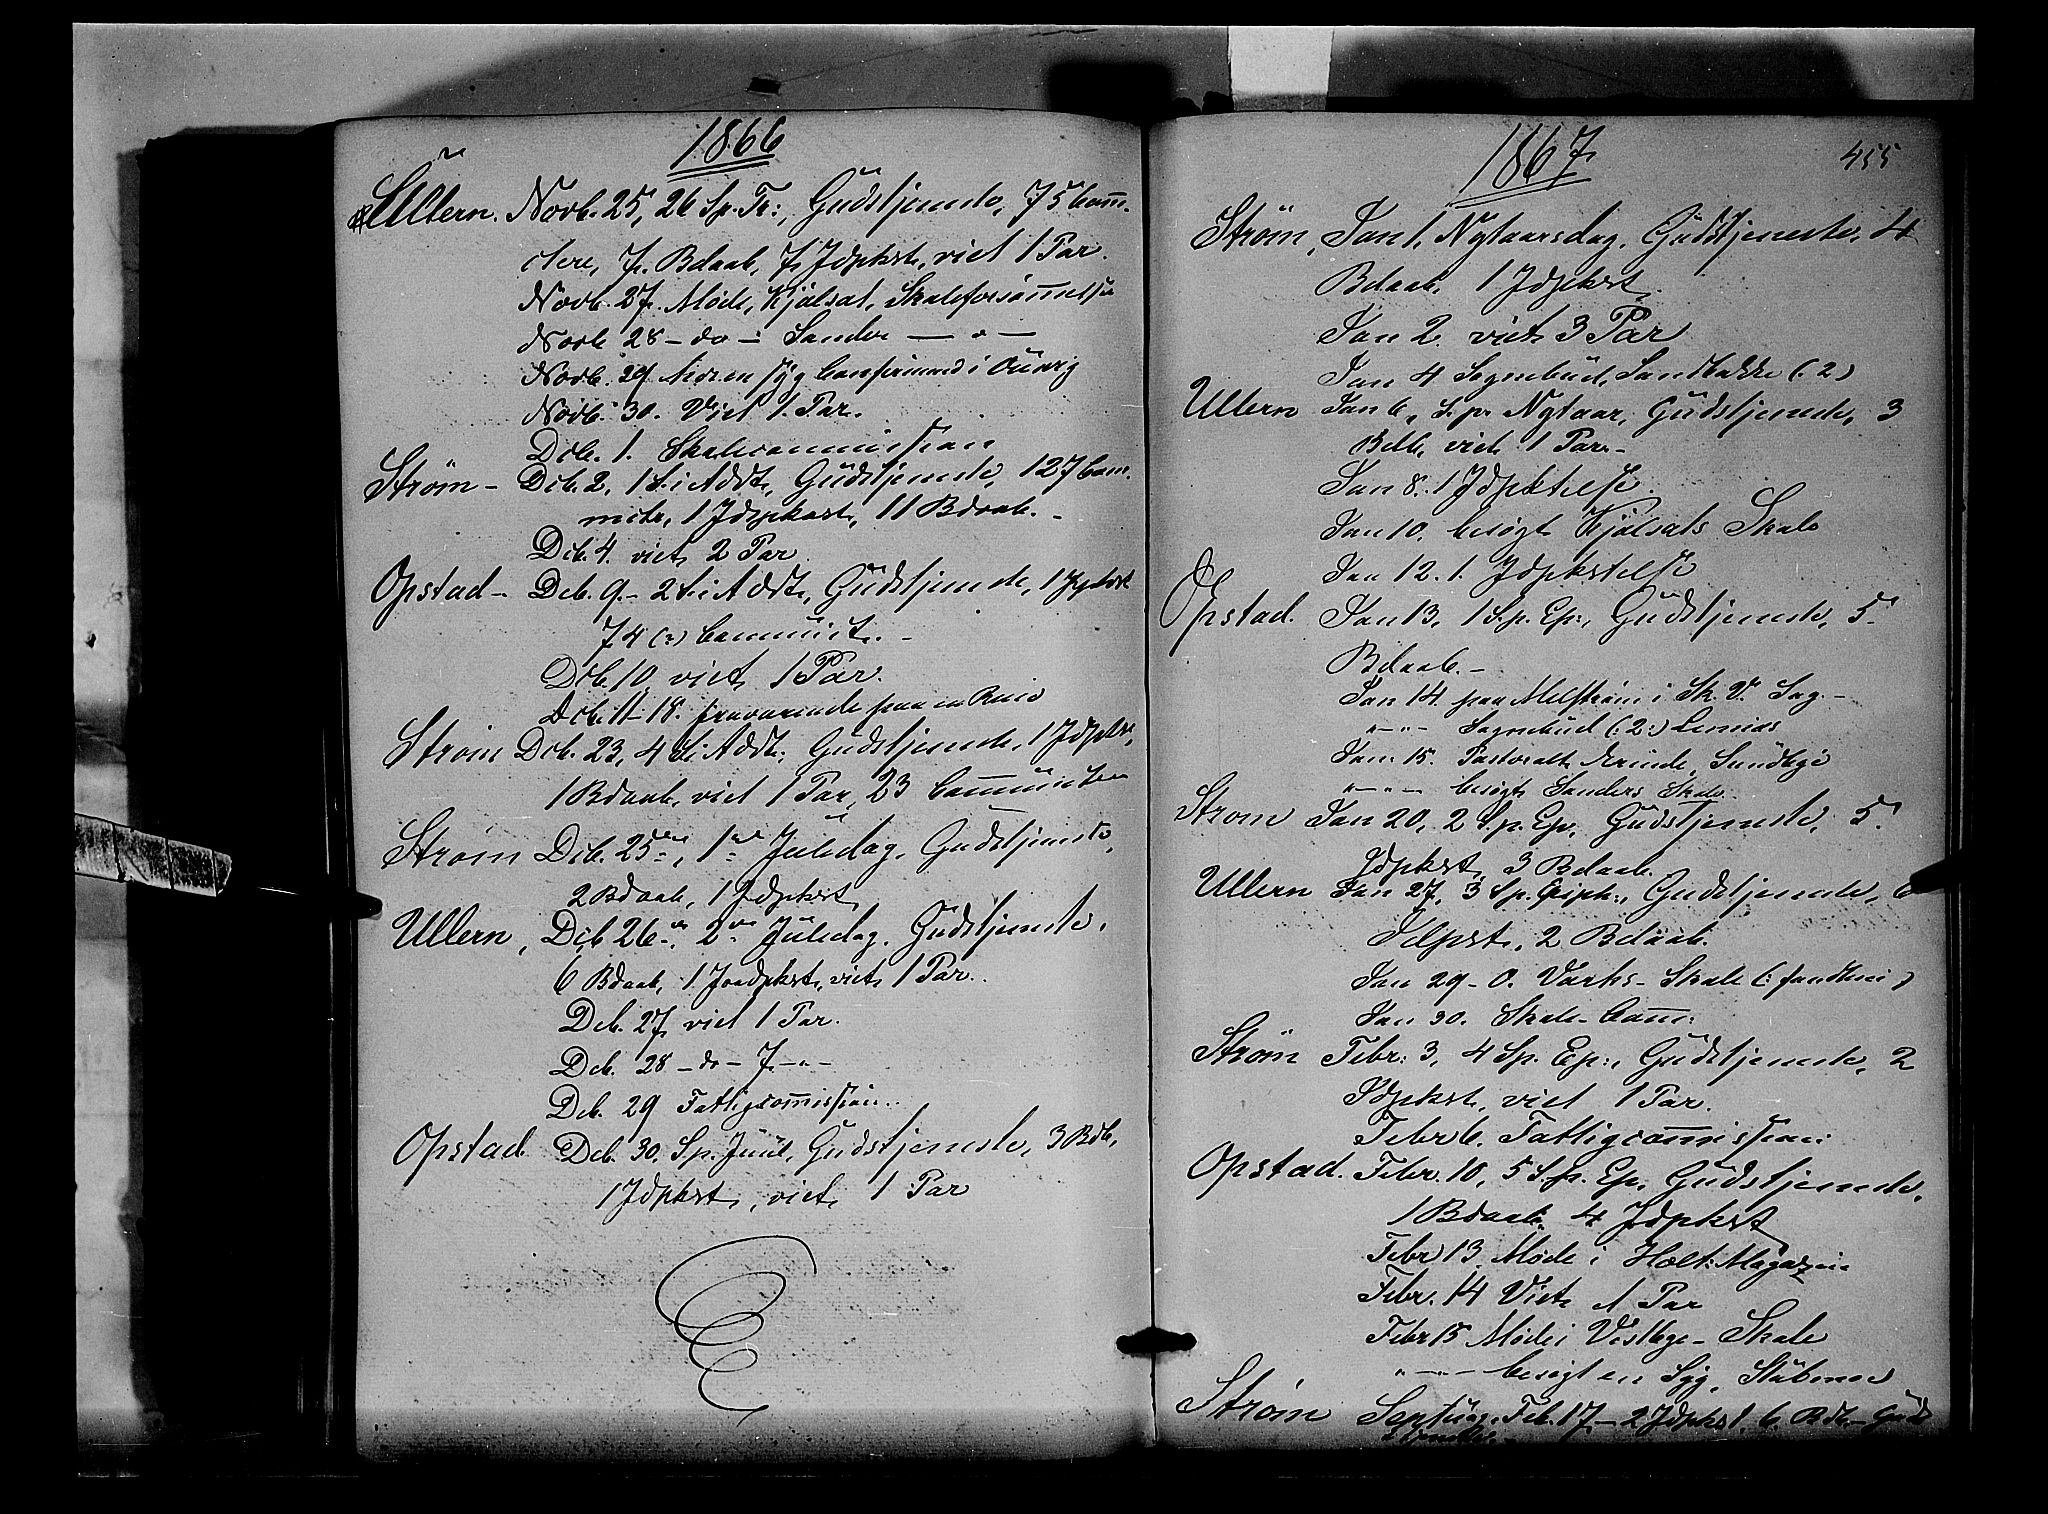 1866
Ullern. Novb. 25, 26 Sp. Tr:, Gudstjeneste, 75 Comm-
Novb. 27. Møde, Kjølsæt, Skoleforsømmelse
Novb. 28 – do – i Sander — " —
Novb. 29 en syg Confirmand i
Novb. 30. Viet 1 Par.
Dcb. 1. Skolecommission
Strøm – Dcb. 2, 1 S. i Advt, Gudstjeneste, 127 Com-
munic, 1 Idpkst, 11 Bdaab. –
Dcb. 4. viet 2 Par
Opstad – Dcb. 9 – 2 S. i Advt, Gudstjeneste, 1 Idpkst
74 (?) Communict. –
Dcb. 10 viet 1 Par.
Dcb. 11–18. fraværende paa en Reise
Strøm Dcb. 23, 4 S. i Advt; Gudstjeneste, 1 Idpkst,
1 Bdaab, viet 1 Par, 23 Communicter
Strøm Dcb. 25de, 1ste Juledag. Gudstjeneste,
2 Bdaab, 1 Idpkst.
Ullern, Dcb. 26de, 2den Juledag. Gudstjeneste,
6 Bdaab, 1 Introdpkst, viet 1 Par.
Dcb. 27, viet 1 Par.
Dcb. 28 – do – 7 – " –
Dcb. 29 Fattigcommission.
Opstad Dcb. 30. S. p. Juul, Gudstjeneste, 3 Bdb,
1 Idpkst, viet 1 Par
1867
455
Strøm, Jan 1, Nytaarsdag, Gudstjeneste, 4
Bdaab. 1 Idpkst.
Jan 2. viet 3 Par
Jan 4 Sognebud, Sandbakke (: 2)
Ullern Jan 6, S. p. Nytaar, Gudstjeneste, 3
Bdb, viet 1 Par. –
Jan 8. 1 Idpktelse
Jan 10. besøgt Kjølsæts Skole
Jan 12. 1. Idpkstelse
Opstad. Jan 13, 1 S. p. Ep:, Gudstjeneste, 5
Bdaab. –
Jan 14. paa Melstrøm i Sk. V. Sag. –
" – " – Sognebud (: 2:)
Jan. 15. Pastoralt Ærinde, Sundbye
" – " – besøgt Sanders Skole.
Strøm Jan 20, 2 S. p. Ep, Gudstjeneste, 5
Idpkst, 3 Bdaab.
Ullern Jan 27, 3 S. p. Epiph:, Gudstjeneste, 6
Idpkst, 2 Bdaab.
Jan 29 – O. Værks – Skole
Jan 30. Skole-Comm:
Strøm Febr: 3, 4 S. p. Ep:, Gudstjeneste, 2
Idpkst, viet 1 Par.
Febr 6. Fattigcommission:
Opstad. Febr. 10, 5 S. p. Ep, Gudstjeneste,
1 Bdaab. 4 Idpkst
Febr 13. Møde i Holt: Magazin
Febr. 14 Viet 1 Par
Febr 15 Møde i Vestbye – Skole
" – " – besøgt en Syg,
Strøm Septuag. Feb. 17 – 2 Idpkst, 6 Bdb – Guds